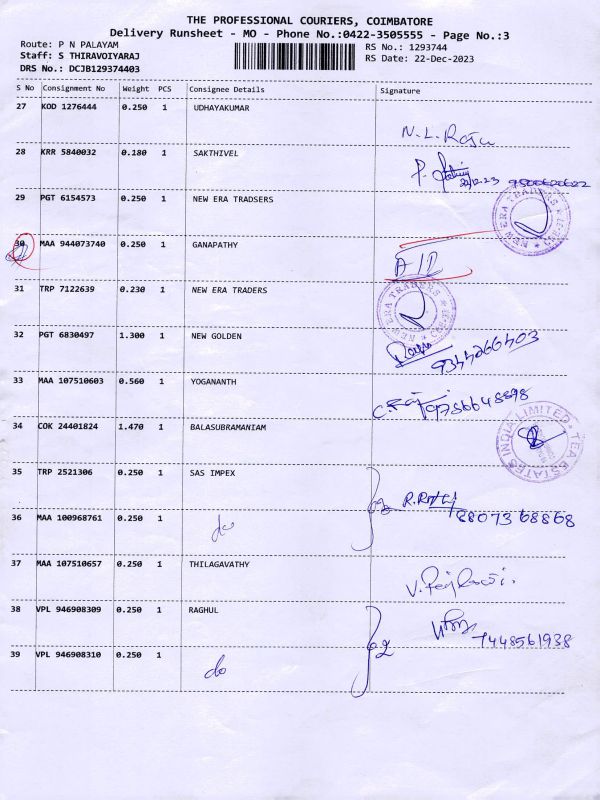 THE PROFESSIONAL COURIERS, COIMBATORE
Delivery Runsheet - MO - Phone No.:0422-3505555 - Page No.:3
Route: P N PALAYAM
RS No.: 1293744
Staff: S THIRAVOIYARAJ
RS Date: 22-Dec-2023
DRS No.: DCJB129374403
S No Consignment No Weight PCS Consignee Details Signature
27 KOD 1276444 0.250 1 UDHAYAKUMAR
N.L. Raju
28 KRR 5840032 0.180 1 SAKTHIVEL
22/12-23
29 PGT 6154573 0.250 1 NEW ERA TRADSERS
NEW ERA TRADERS
30 MAA 944073740 0.250 1 GANAPATHY
31 TRP 7122639 0.230 1 NEW ERA TRADERS
NEW ERA TRADERS
32 PGT 6830497 1.300 1 NEW GOLDEN
9344266403
33 MAA 107510603 0.560 1 YOGANANTH
9786648898
34 COK 24401824 1.470 1 BALASUBRAMANIAM
TEA ESTATES INDIA LIMITED
35 TRP 2521306 0.250 1 SAS IMPEX
88073 68868
36 MAA 100968761 0.250 1 do
37 MAA 107510657 0.250 1 THILAGAVATHY
38 VPL 946908309 0.250 1 RAGHUL
2 7448561938
39 VPL 946908310 0.250 1 do